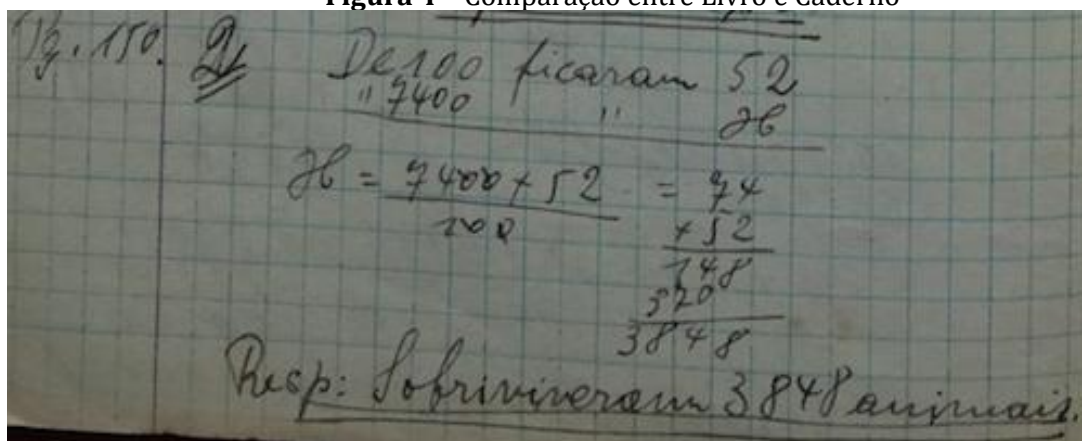 Figura 4 - Comparação entre Livro e Caderno
Pg. 150. 2) De 100 ficaram 52
" 7400 " x
x = 7400 x 52 = 74
100 x 52
148
370
3848
Resp: Sobriviveram 3848 animais.